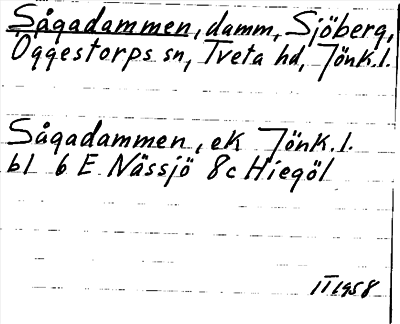 Sågadammen, damm, Sjöberg,
Öggestorps sn, Tveta hd, Jönk.l.
Sågadammen, ek Jönk.l.
bl 6 E Nässjö 8c Hiegöl
II 1958